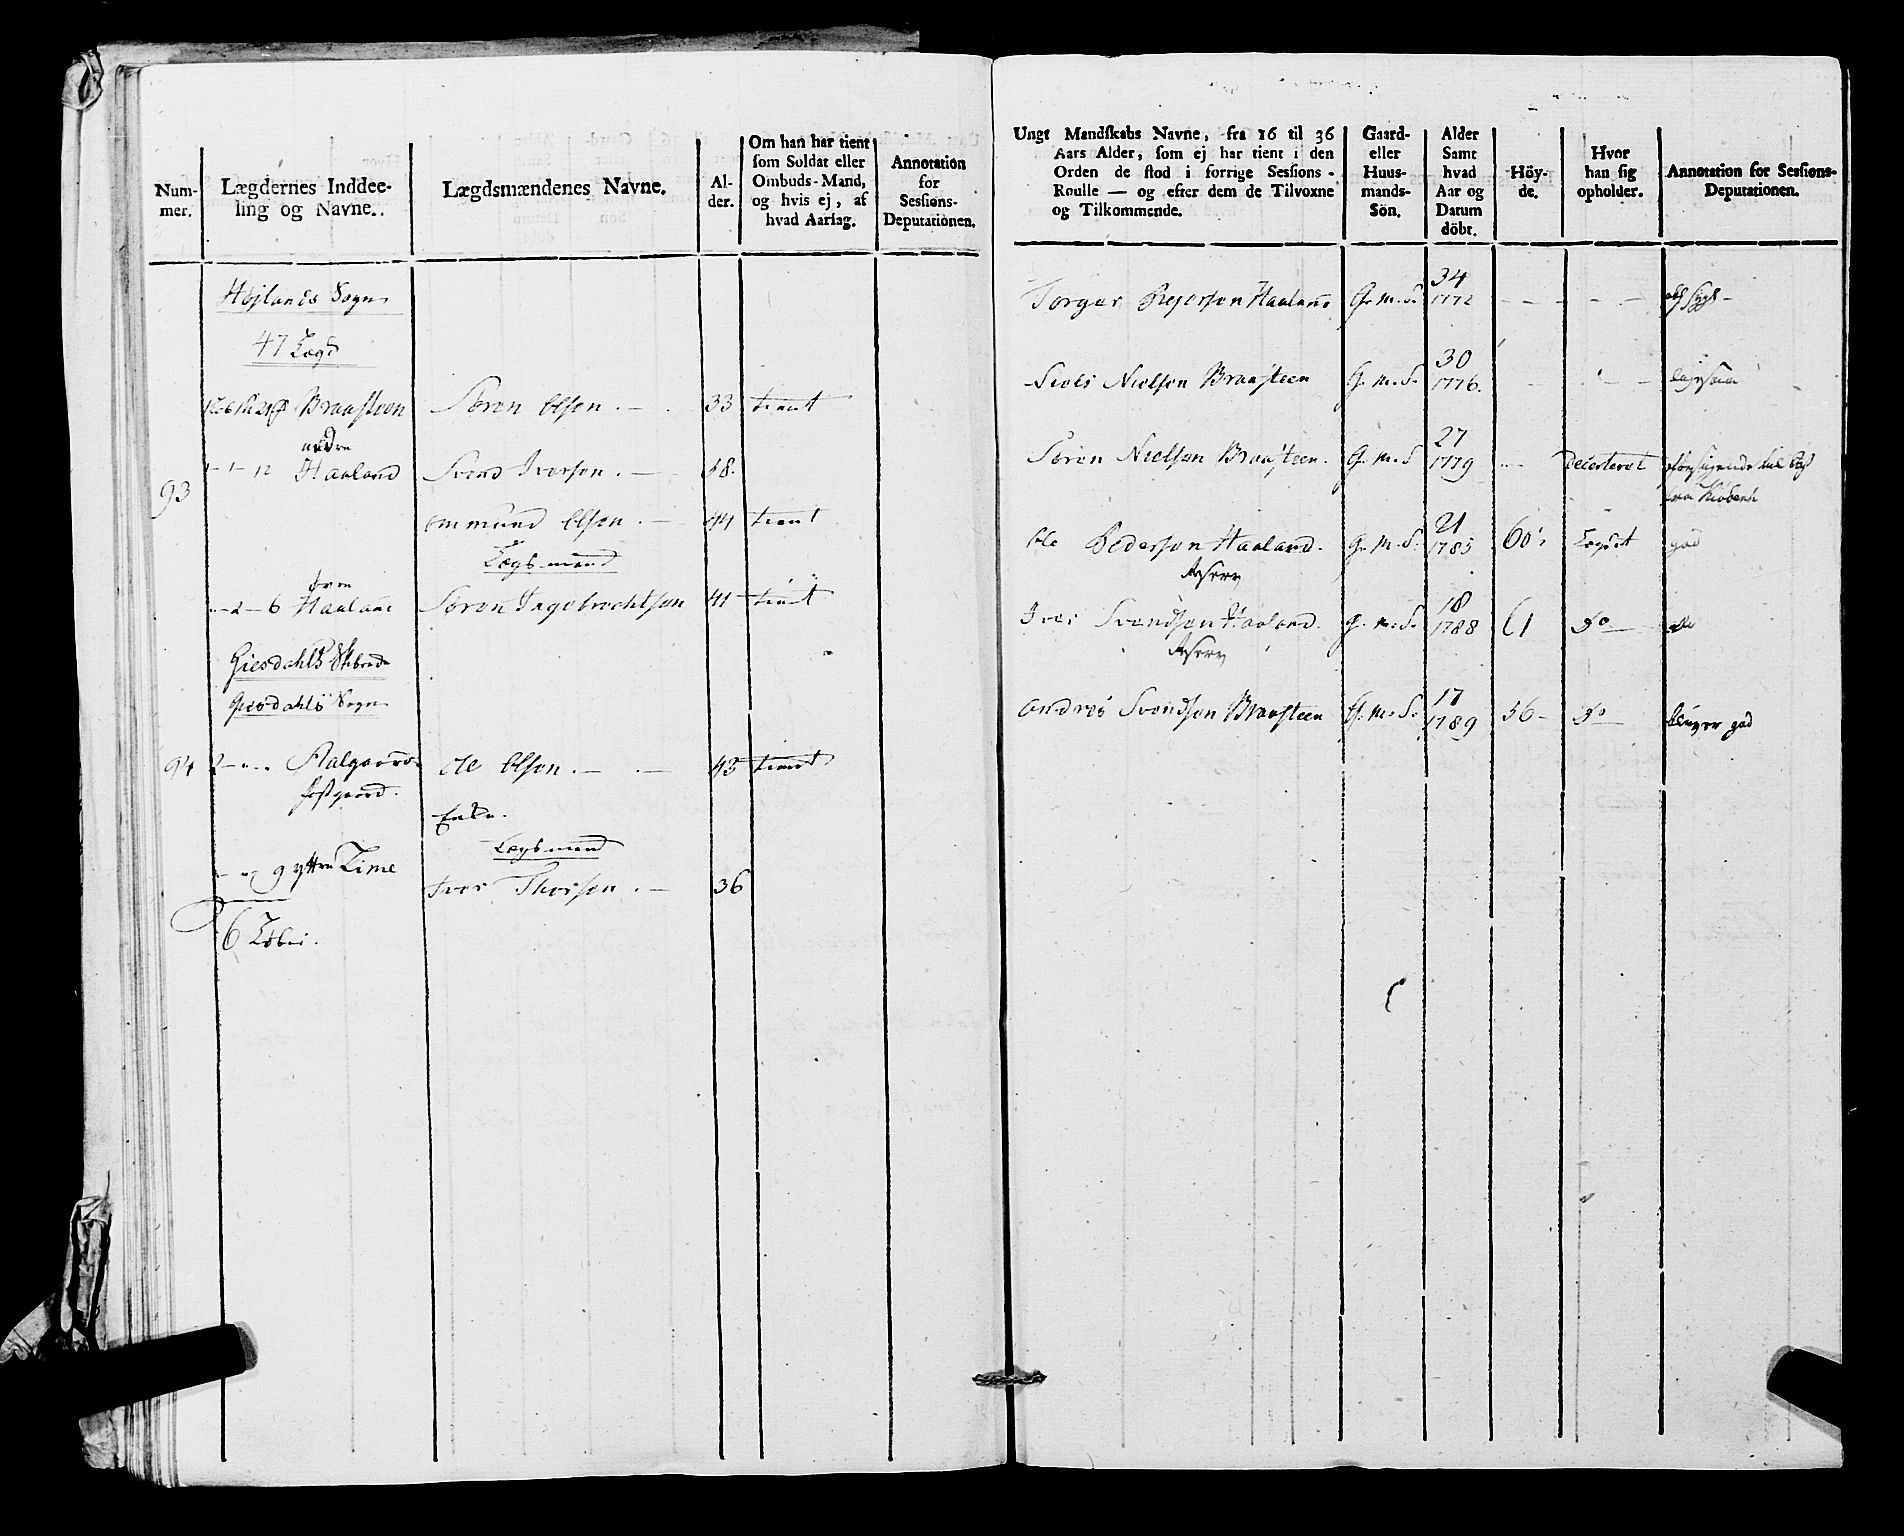 Num-
mer.
Lægdernes Inddee-
ling og Navne.
Lægdsmændenes Navne.
Al-
der.
Om han har tient
som Soldat eller
Ombuds-Mand,
og hvis ej, af
hvad Aarsag.
Annotation
for
Sessions-
Deputationen.
Højlands Sogn
47 Lægd
Braasteen
Søren Olsen
33
tient
nædre
1 - 12 Haaland
Svend Iversen
58.
93
Ommund Olsen
44
tient
Lægsmand
øvre
2 - 6 Haaland
Søren Ingebrechtsen
41
tient
Giesdahls
Giesdahls Sogn
94
2
Aalgaard
Ole Olsen
43
tient
Enke.
Lægsmand
9 yttre Lime
Iver Thorsen
36
6 Løber.
Ungt Mandskabs Navne, fra 16 til 36
Aars Alder, som ej har tient i den
Orden de stod i forrige Sessions-
Roulle — og efter dem de Tilvoxne
og Tilkommende.
Gaard-
eller
Huus-
mands-
Sön.
Alder
Samt
hvad
Aar og
Datum
döbt.
Höy-
de.
Hvor
han sig
opholder.
Annotation for Sessions-
Deputationen.
34
Torger Haaland
G. M. S.
1772
30
Nielsen Braasteen
G. M. S.
1776.
27
Søren Nielsen Braasteen.
G. M. S
1779
Deserteret
21
Ole Pedersen Haaland.
G. M. S.
1785
60
Lægdet
god
Reserv
18
Iver Svendsen Haaland.
G. M. S.
1788
61
Do
Do
Reserv
17
Andres Svendsen Braasteen
G. M. S.
1789
56
Do
god